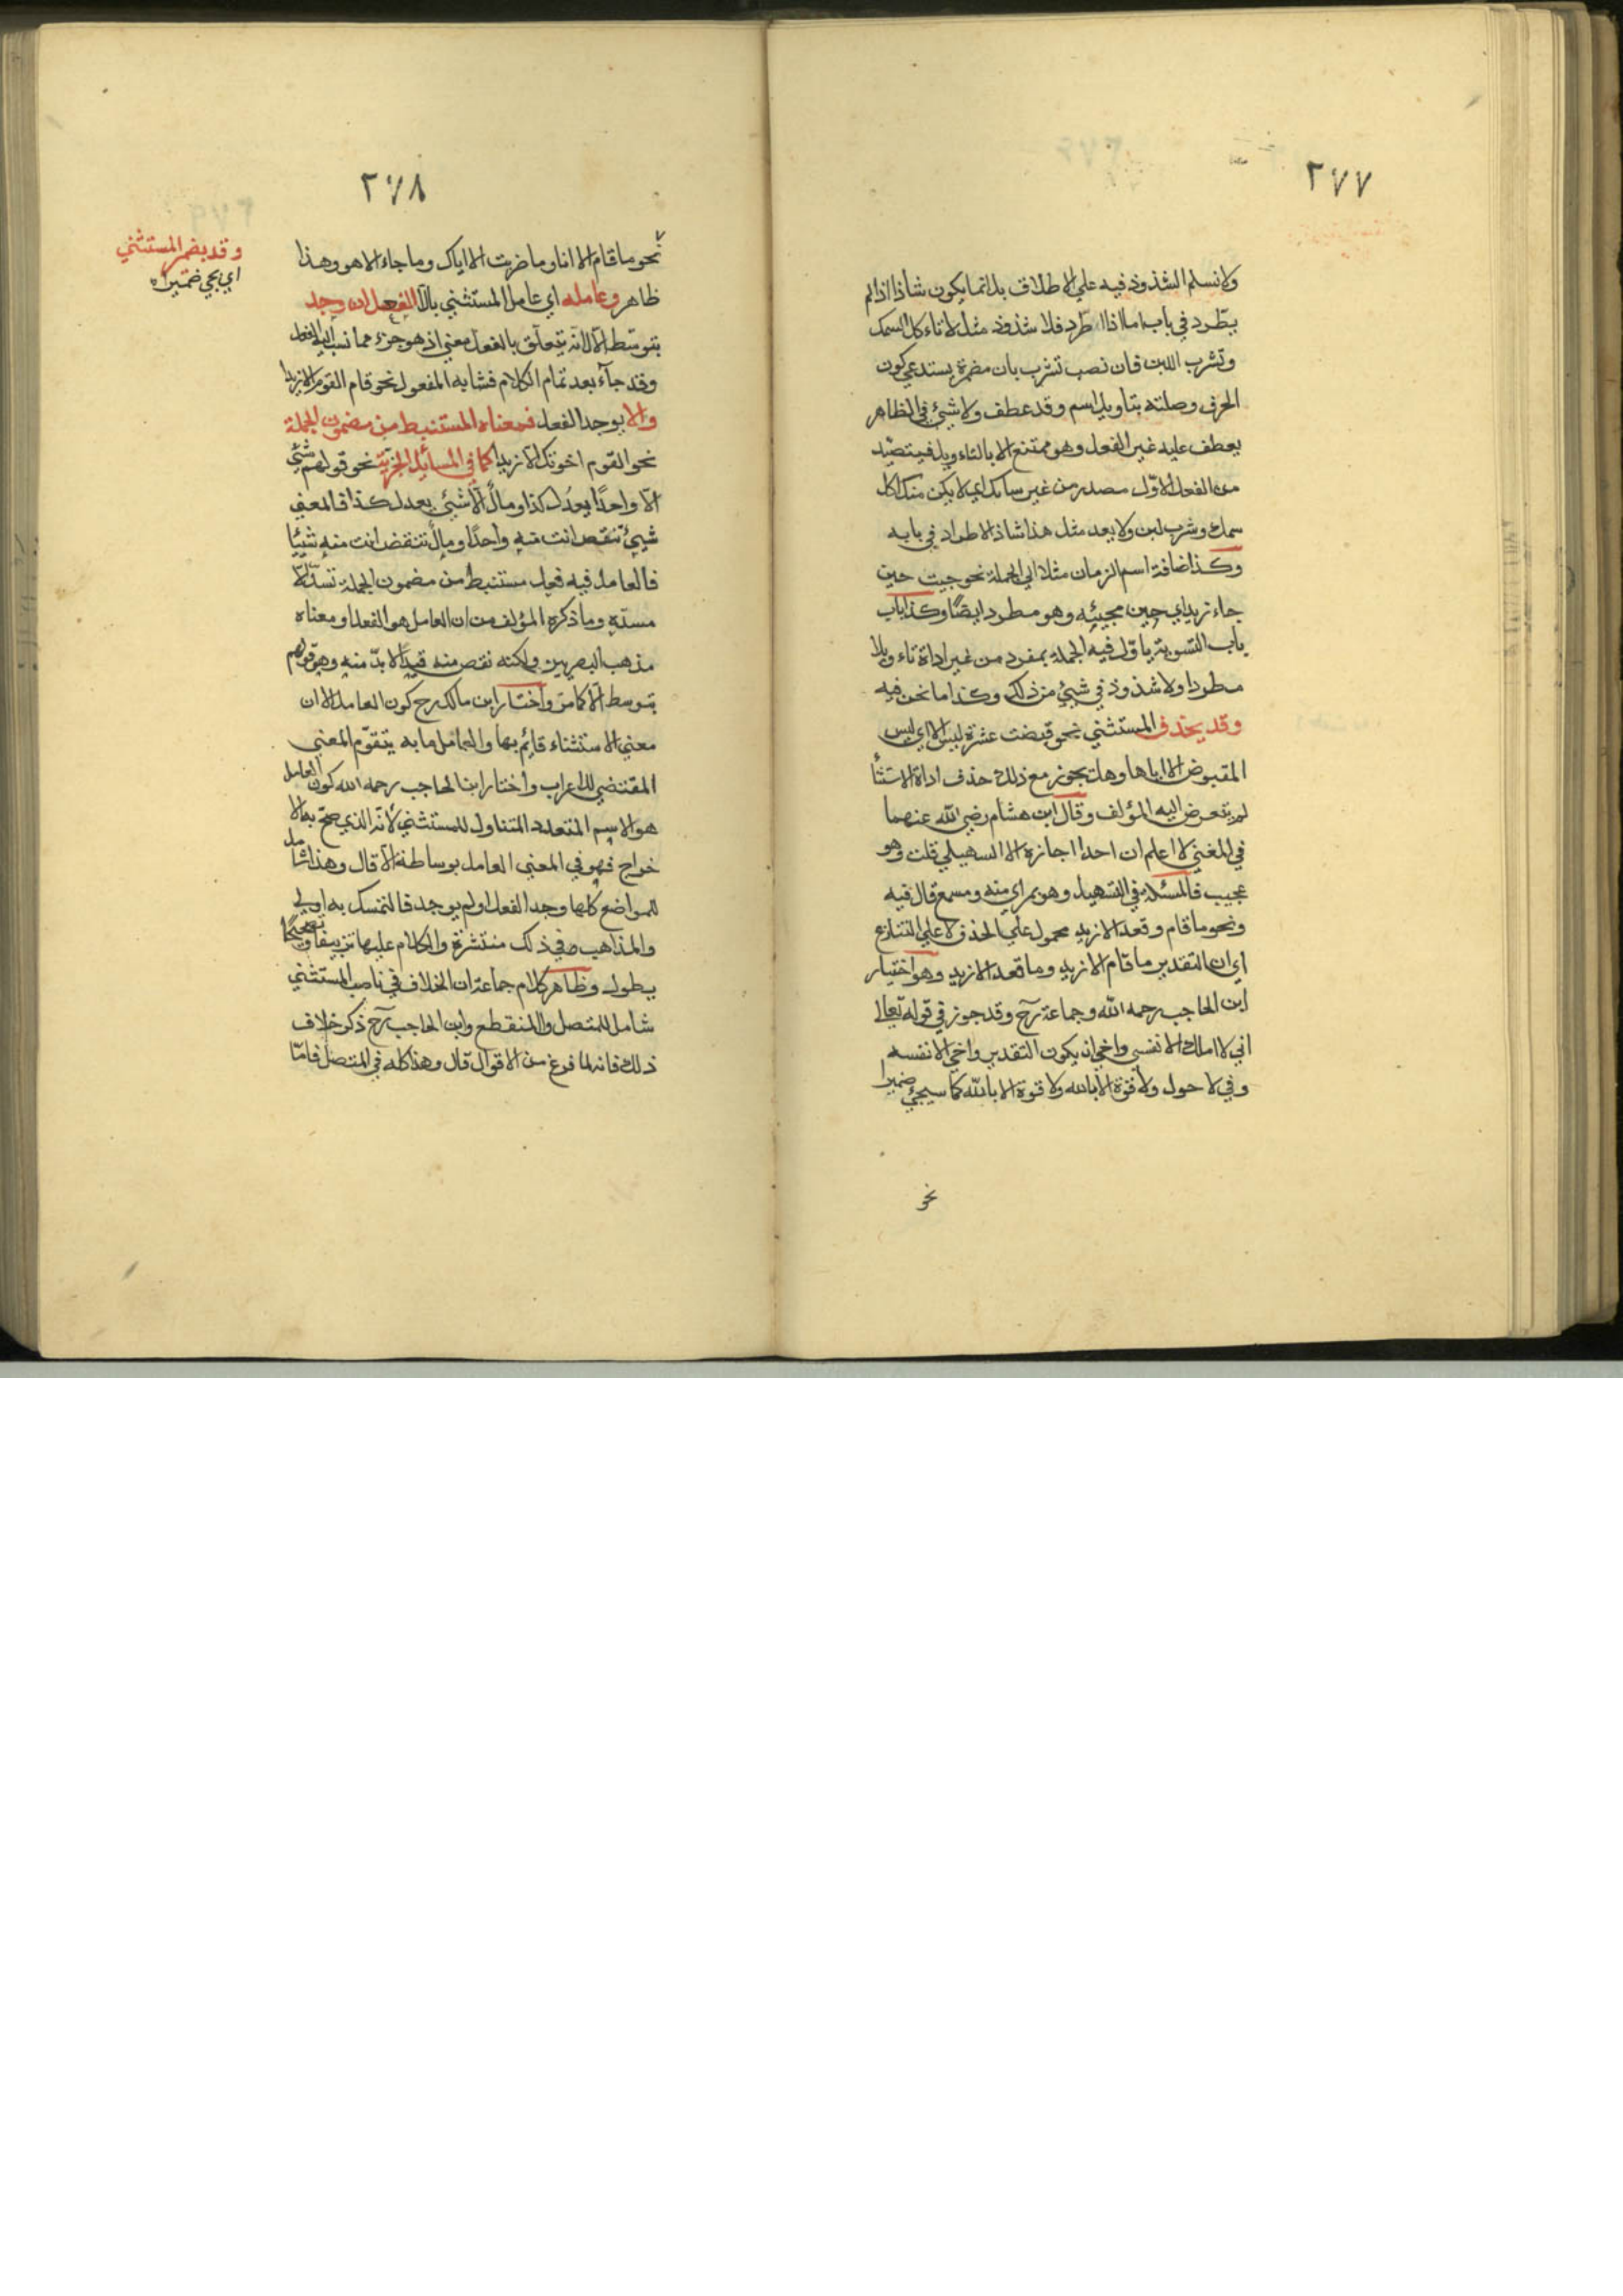 ٢٧٧
ولا نسلم الشذوذ فيه علي الاطلاق بل انما يكون شاذا اذا لم
يطّرد في باب اما اذا اطّرد فلا شذوذ مثل لا تاءكل السمك
وتشرب اللبن فان نصب تشرب بان مضمرة يستدعي كون
الحرف وصلته بتاويل اسم وقد عطف ولا شيئ في الظاهر
يعطف عليه غير الفعل وهو ممتنع الا بالتاءويل فيتصيّد
من الفعل الاوّل مصدر من غير سابك اي لا يكن منك اكل
سمك وشرب لبن ولا يعد مثل هذا شاذ الاطراد في بابه
وكذا اضافة اسم الزمان مثلا الي الجملة نحو جيت حين
جاء زيد اي حين مجيئه وهو مطرد ايضًا وكذا باب
باب التسوية ياوّل فيه الجملة بمفرد من غير اداة تاءويلا
مطردا ولا شذوذ في شيئ من ذلك وكذا ما نحن فيه
وقد يحذف المستثني نحو قبضت عشرة ليس الا اي ليس
المقبوض الا اياها وهل يجوز مع ذلك حذف اداة الاستثأ
لم يتعرض اليه المؤلف وقال ابن هشام رضي الله عنهما
في المغني لا اعلم ان احدا اجازه الا السهيلي قلت وهو
عجيب فالمسئلة في التسهيل وهو بمراي منه ومسمع قال فيه
ونحو ما قام وقعد الا زيد محمول علي الحذف لا علي التنازع
اي ان التقدير ما قام الا زيد وما قعد الا زيد وهو اختيار
ابن الحاجب رحمه الله وجماعة رح وقد جوز في قوله تعالا
اني لا املك الا نفسي واخي ان يكون التقدير واخي الا نفسه
وفي لا حول ولا قوة الا بالله ولا قوة الا بالله كما سيجيئ ضميرا
نحو
٢٧٨
نحو ما قام الا انا وما ضربت الا اياك وما جاء الا هو وهذا
ظاهر وعامله اي عامل المستثني بالّا الفعل ان وجد
بتوسّط الّا لانه يتعلق بالفعل معني اذ هو جزء مما نسب اليه الفعل
وقد جآء بعد تمام الكلام فشابه المفعول نحو قام القوم الا زيدا
والا يوجد الفعل فمعناه المستنبط من مضمون الجملة
نحو القوم اخوتك الا زيدا كما في المسائل نحو قولهم شيئ
الّا واحدًا يعدل كذا ومالٌ الّا شيئ يعدل كذا فالمعني
شيئ تنقص انت منه واحدًا ومالٌ تنقض انت منه شيئا
فالعامل فيه فعل مستنبط من مضمون الجملة تسدّ الّا
مسدّه وما ذكره المؤلف من ان العامل هو الفعل او معناه
مذهب البصريين ولكنه نقص منه قيدًا لا بدّ منه وهو قولهم
بتوسط الّا كما مرّ واختار ابن مالك رح كون العامل الا ان
معني الاستثناء قائم بها والعامل ما به يتقوّم المعني
المقتضي للاعراب واختار ابن الحاجب رحمه الله كون العامل
هو الاسم المتعدد المتناول للمستثني لانّه الذي صحّ به الا
خراج فهو في المعني العامل بوساطة الّا قال وهذا شامل
للمواضع كلها وجد الفعل او لم يوجد فالتمسك به اولي
والمذاهب في ذلك منتشرة والكلام عليها تزييفا وتصحيحًا
يطول وظاهر كلام جماعة ان الخلاف في ناصب المستثني
شامل للمتصل والمنقطع وابن الحاجب رح ذكر خلاف
ذلك فانه لما فرغ من الاقوال قال وهذا كله في المتصل فامّا
وقد يضمر المستثني
اي يجي ضميرا